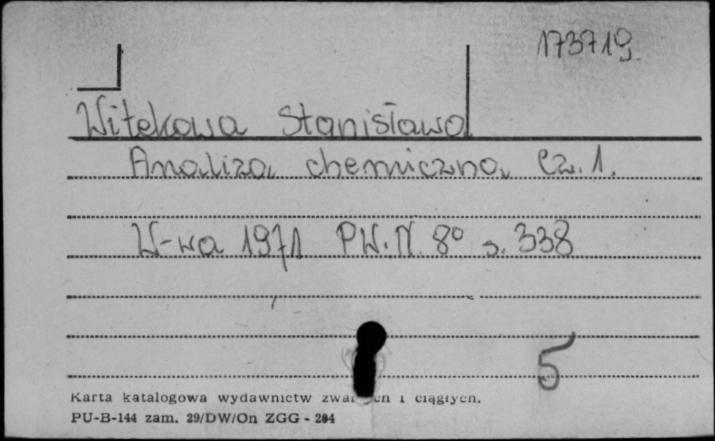 173719
Witekowa Stanisława
Analiza chemiczna Cz. 1.
W-wa 1971 PW.N. 8° s. 338
5
Karta katalogowa wydawnictw i ciągłych.
PU-B-144 zam. 29/DW/On ZGG - 284